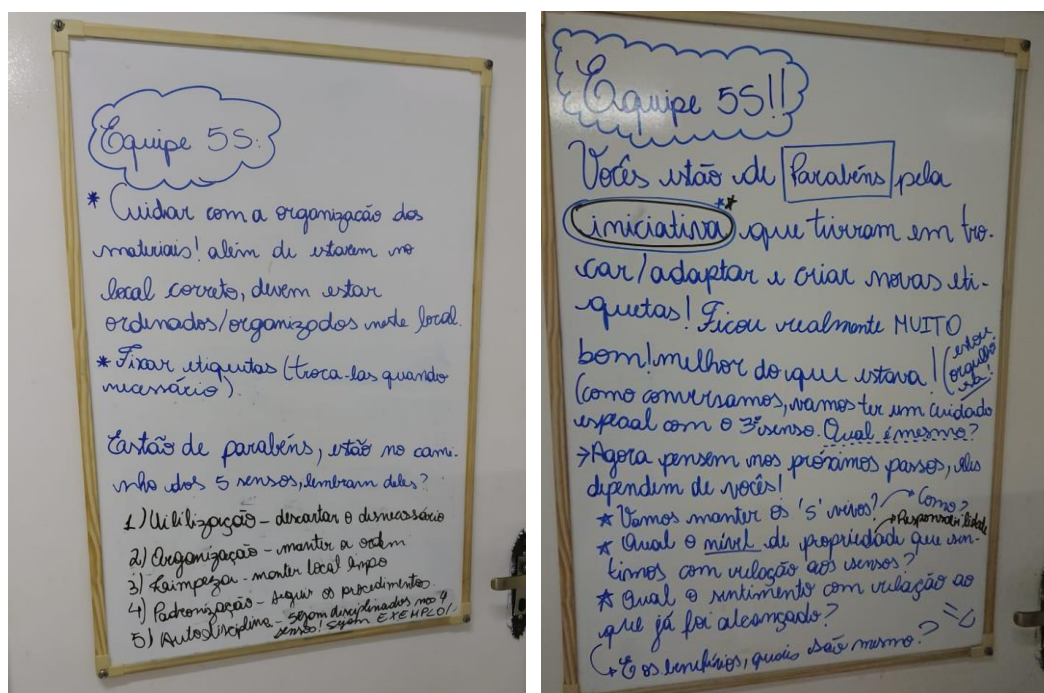 Equipe 5S:
* Cuidar com a organização dos
materiais! além de estarem no
local correto, devem estar
ordenados/organizados neste local.
* Fixar etiquetas (troca-las quando
necessário).
Estão de parabéns, estão no cami-
nho dos 5 sensos, lembram deles?
1) Utilização - descartar o desnecessário
2) Organização - manter a ordem
3) Limpeza - manter local limpo
4) Padronização - seguir os procedimentos.
5) Autodisciplina - sejam disciplinados nos 4
sensos! sejam EXEMPLO!
Equipe 5S!!
Vocês estão de Parabéns pela
iniciativa ** que tiveram em tro-
car/adaptar e criar novas eti-
quetas! Ficou realmente MUITO
bom! melhor do que estava! (estou
orgulho
sa!
(como conversamos, vamos ter um cuidado
especial com o 3º senso. Qual é mesmo?
→Agora pensem nos próximos passos, eles
dependem de vocês!
* Vamos manter os '5' vivos? → Como?
→ Responsabilidade
* Qual o nível de propriedade que sen-
timos com relação aos sensos?
* Qual o sentimento com relação ao
que já foi alcançado?
→ E os benefícios, quais são mesmo?